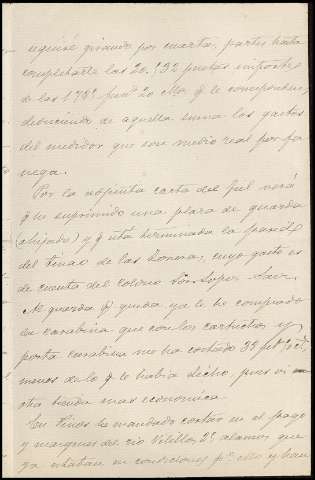 seguiré girando por cuartas partes hasta
completarle las 20.132 pesetas importe
de las 178 20 que le corresponden,
deduciendo de aquella suma los gastos
del medidor que son medio real por fa
nega.
Por la adjunta carta del Fiel verá
q he suprimido una plaza de guarda
(ahijado) y q está terminada la pared
del tinao de las Zorreras, cuyo gasto es
de cuenta del colono López
Al guarda q queda ya le he comprado
la carabina que con los cartuchos y
porta carabina me ha costado 33
menos de lo q le había dicho, pues vi en
otra tienda mas económica.
En Tiños he mandado cortar en el pago
y margenes del rio Velillos, 2 alamos que
ya estaban en condiciones pª ello y han